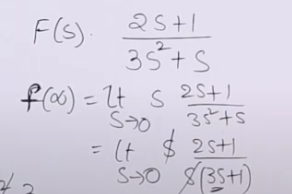 F(s). (2s+1)/(3s²+s)
f(∞) = lt s→0 s (2s+1)/(3s²+s)
= lt s→0 s (2s+1)/(s(3s+1))